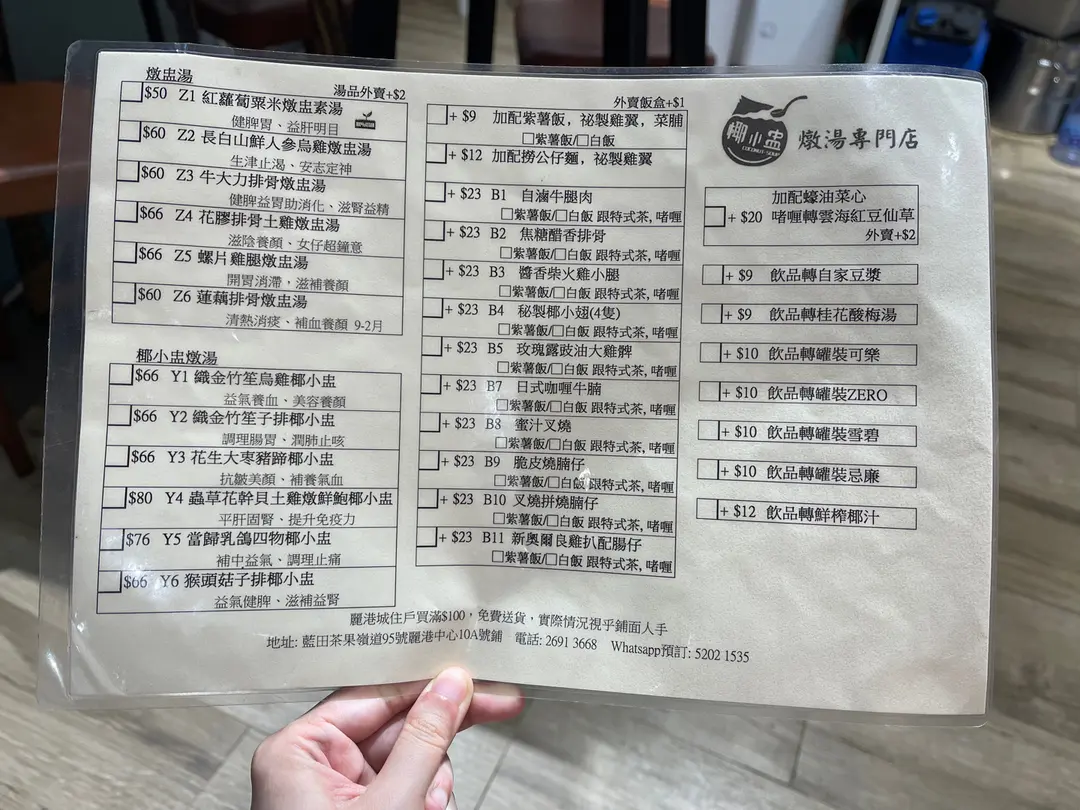 燉盅湯
湯品外賣+$2
$50 Z1 紅蘿蔔粟米燉盅素湯
健脾胃、益肝明目
$60 Z2 長白山鮮人參烏雞燉盅湯
生津止渴、安志定神
$60 Z3 牛大力排骨燉盅湯
健脾益胃助消化、滋腎益精
$66 Z4 花膠排骨土雞燉盅湯
滋陰養顏、女仔超鐘意
$66 Z5 螺片雞腿燉盅湯
開胃消滯，滋補養顏
$60 Z6 蓮藕排骨燉盅湯
清熱消痰、補血養顏 9-2月
椰小盅燉湯
$66 Y1 織金竹笙烏雞椰小盅
益氣養血、美容養顏
$66 Y2 織金竹笙子排椰小盅
調理腸胃、潤肺止咳
$66 Y3 花生大枣豬蹄椰小盅
抗皺美顏、補養氣血
$80 Y4 蟲草花幹貝土雞燉鮮鮑椰小盅
平肝固腎、提升免疫力
$76 Y5 當歸乳鴿四物椰小盅
補中益氣、調理止痛
$66 Y6 猴頭菇子排椰小盅
益氣健脾、滋補益腎
外賣飯盒+$1
+ $9 加配紫薯飯，祕製雞翼，菜脯
□紫薯飯/□白飯
+ $12 加配撈公仔麵，祕製雞翼
+ $23 B1 自滷牛腿肉
□紫薯飯/□白飯 跟特式茶, 啫喱
+ $23 B2 焦糖醋香排骨
□紫薯飯/□白飯 跟特式茶, 啫喱
+ $23 B3 醬香柴火雞小腿
□紫薯飯/□白飯 跟特式茶, 啫喱
+ $23 B4 秘製椰小翅(4隻)
□紫薯飯/□白飯 跟特式茶, 啫喱
+ $23 B5 玫瑰露豉油大雞髀
□紫薯飯/□白飯 跟特式茶, 啫喱
+ $23 B7 日式咖喱牛腩
□紫薯飯/□白飯 跟特式茶, 啫喱
+ $23 B8 蜜汁叉燒
□紫薯飯/□白飯 跟特式茶, 啫喱
+ $23 B9 脆皮燒腩仔
□紫薯飯/□白飯 跟特式茶, 啫喱
+ $23 B10 叉燒拼燒腩仔
□紫薯飯/□白飯 跟特式茶, 啫喱
+ $23 B11 新奧爾良雞扒配腸仔
□紫薯飯/□白飯 跟特式茶, 啫喱
椰小盅
COCONUT-SOUP
燉湯專門店
加配蠔油菜心
+ $20 啫喱轉雲海紅豆仙草
外賣+$2
+ $9 飲品轉自家豆漿
+ $9 飲品轉桂花酸梅湯
+ $10 飲品轉罐裝可樂
+ $10 飲品轉罐裝ZERO
+ $10 飲品轉罐裝雪碧
+ $10 飲品轉罐裝忌廉
+ $12 飲品轉鮮榨椰汁
麗港城住戶買滿$100，免費送貨，實際情況視乎鋪面人手
地址: 藍田茶果嶺道95號麗港中心10A號鋪 電話: 2691 3668 Whatsapp預訂: 5202 1535